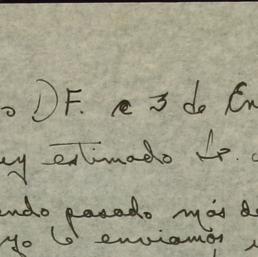 o DF. a 3 de En
ey estimado Sr.
endo pasado más de
yo le enviamos